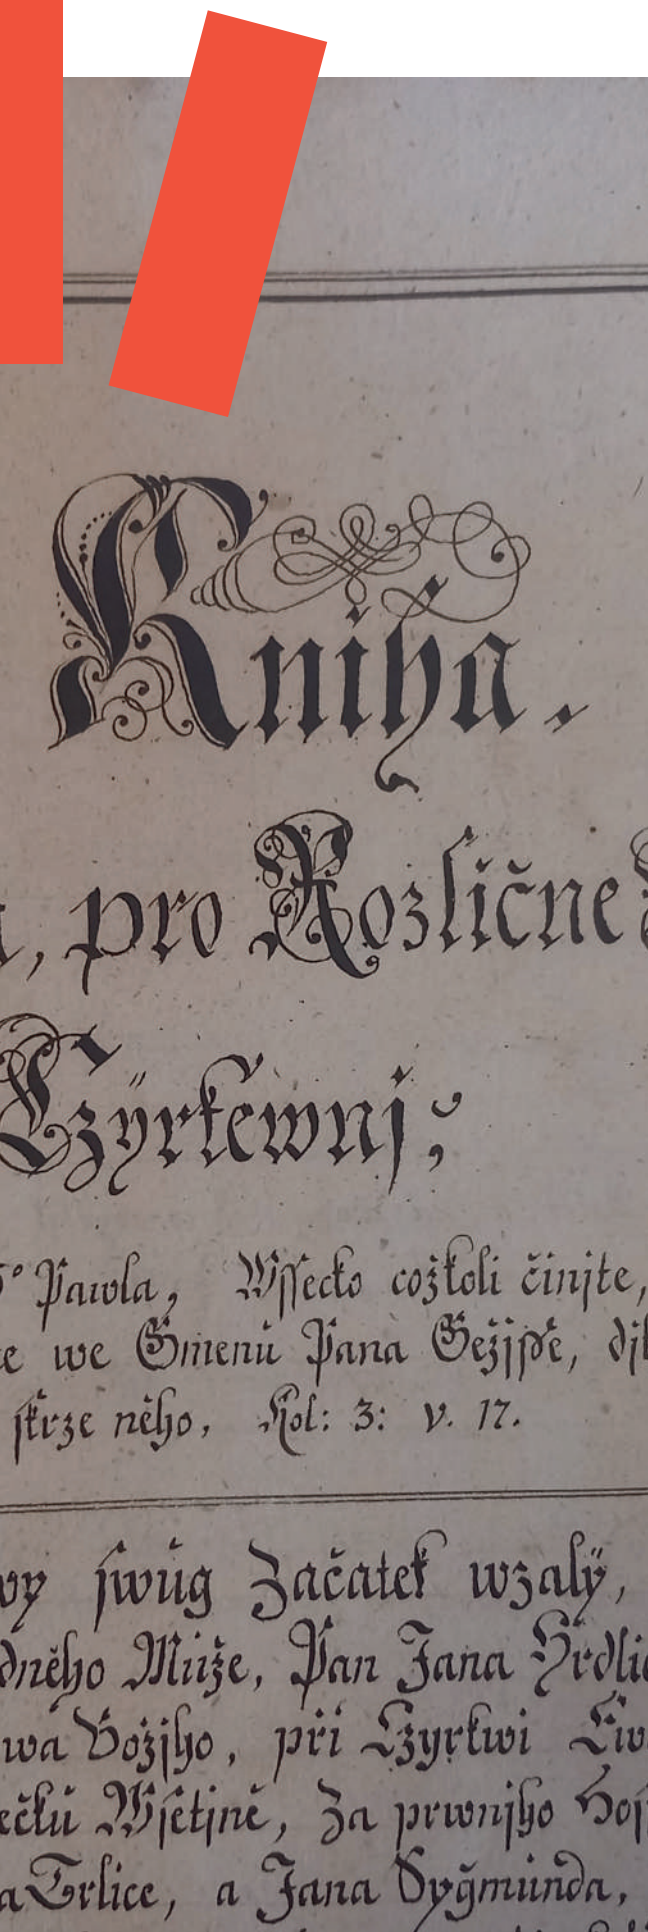 Kniha.
, pro Rozlične
Czÿrkewnj;
Pawla, Wssecko cožkoli činjte,
we Gmenu Pana Gežjsse,
skrze něho, Kol: 3: v. 17.
swůg Začatek wzalÿ,
Muže, Pan Jana
Božjho, při Czyrkwi
Wsetjně, Za prwnjho
Trlice, a Jana Sygmunda,